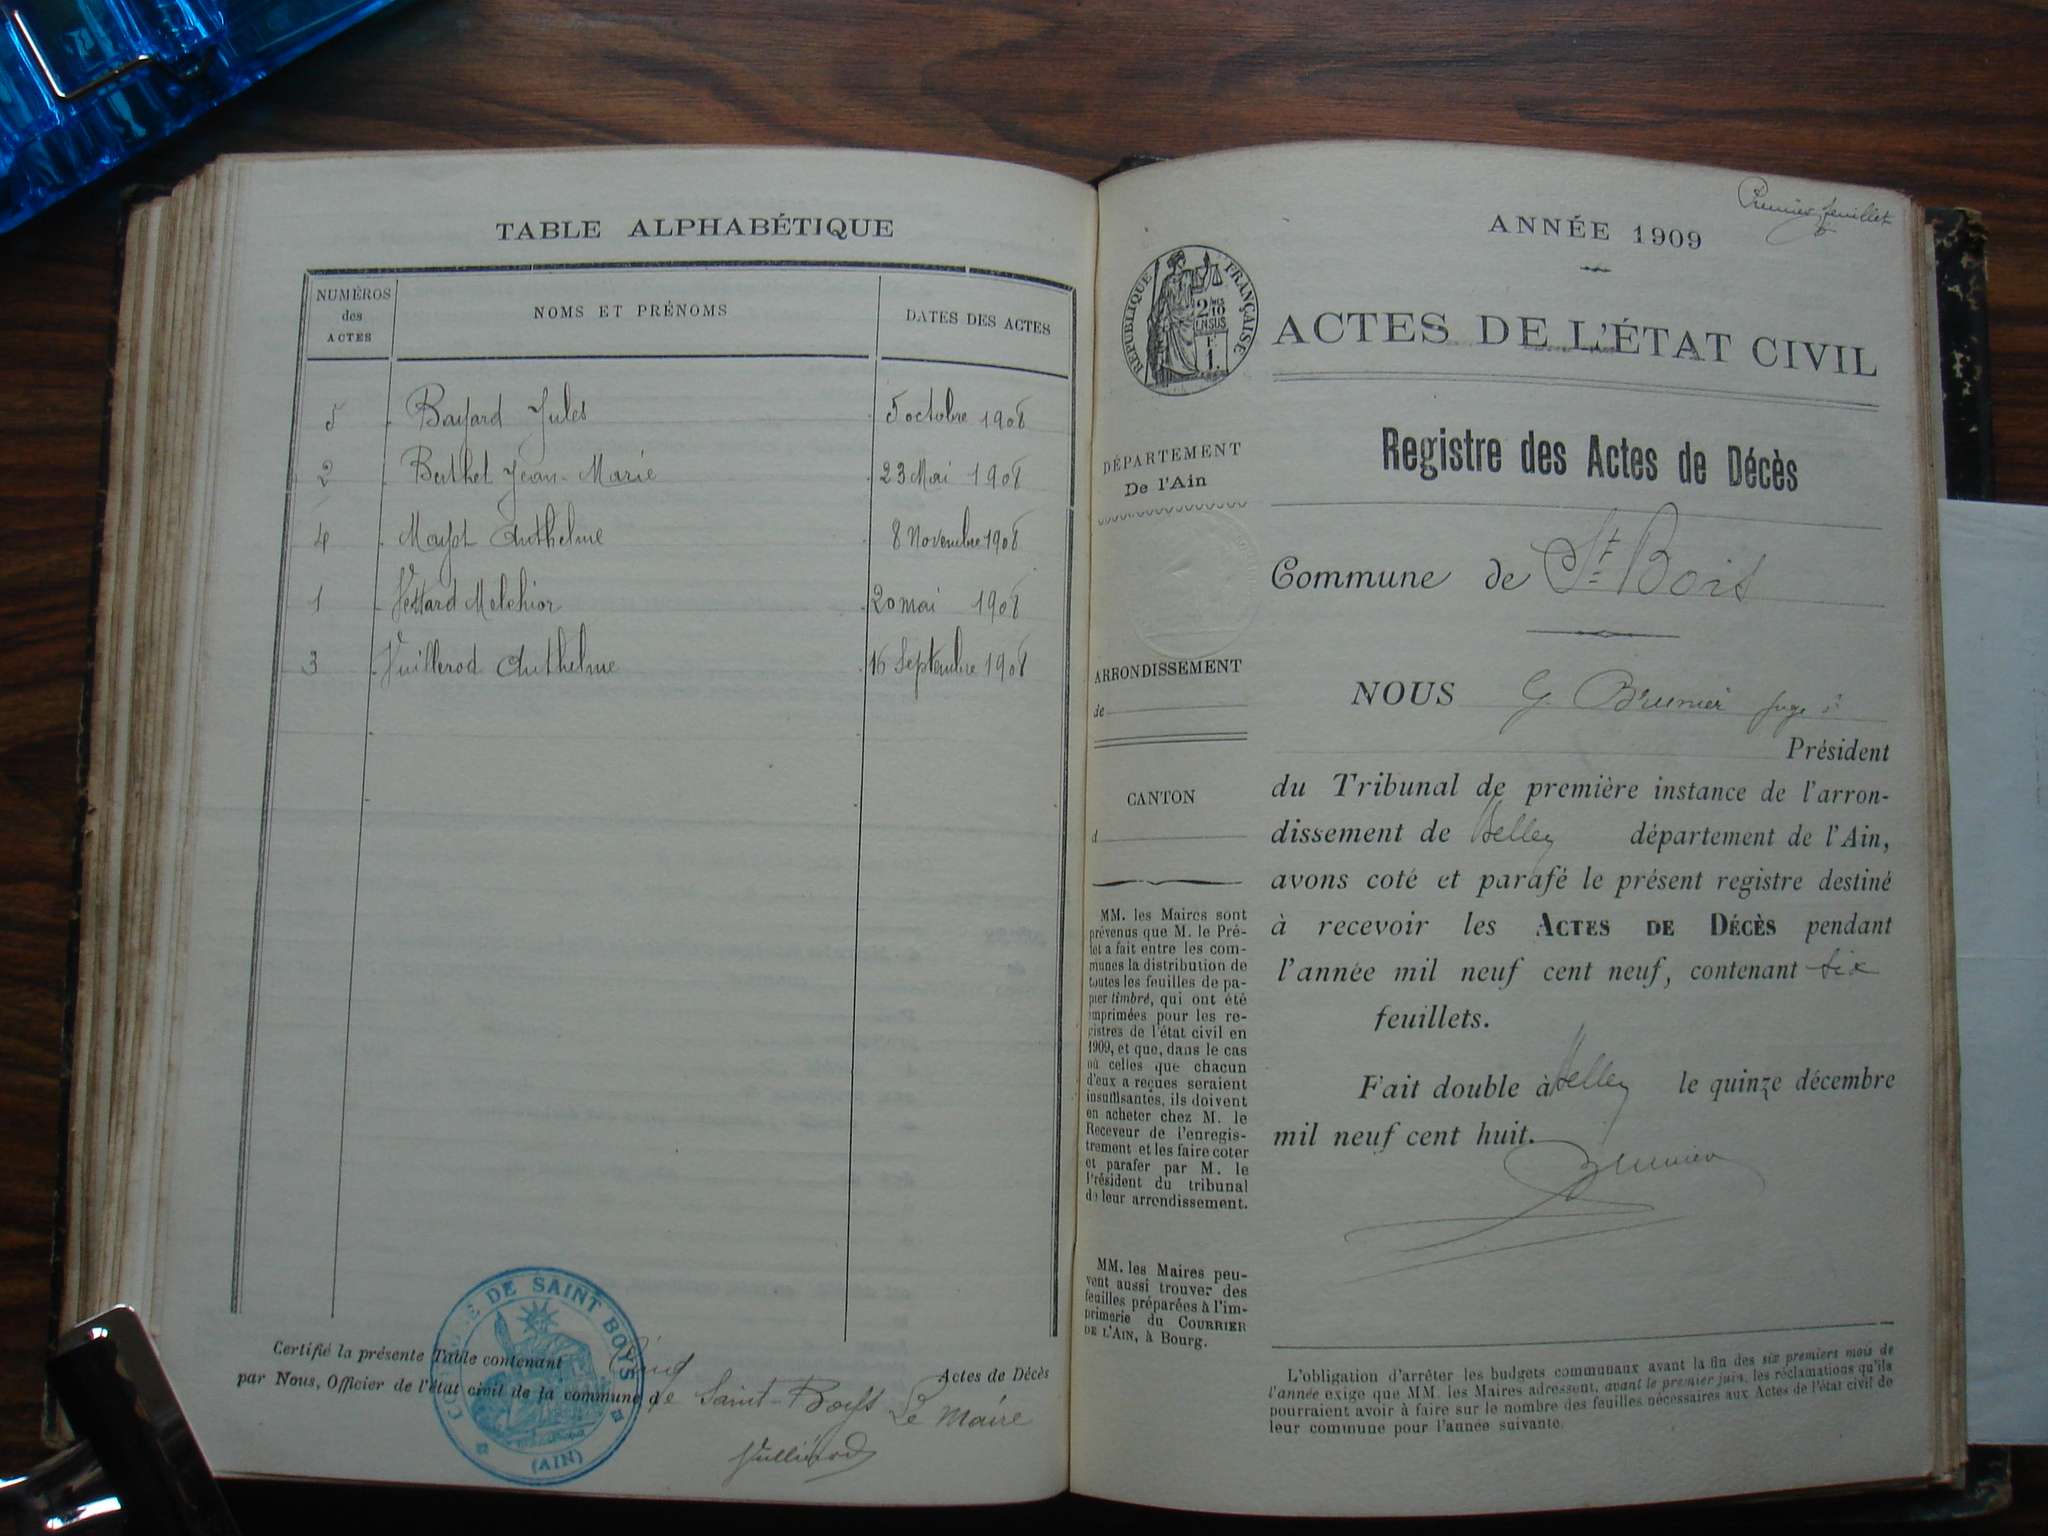 TABLE ALPHABÉTIQUE
NUMÉROS
des
ACTES
NOMS ET PRÉNOMS
DATES DES ACTES
5 Bayard Jules 5 octobre 1908
2 Berthet Jean-Marie 23 Mai 1908
4 Mayot Anthelme 8 Novembre 1908
1 Vettard Melchior 20 mai 1908
3 Vuillerod Anthelme 16 Septembre 1908
Certifié la présente Table contenant Cinq Actes de Décès
par Nous, Officier de l'état civil de la commune de Saint-Boys Le Maire
COMMUNE DE SAINT BOYS
(AIN)
Premier feuillet
ANNÉE 1909
RÉPUBLIQUE FRANÇAISE
2
10
EN SUS
F.
1.
ACTES DE L'ÉTAT CIVIL
Registre des Actes de Décès
DÉPARTEMENT
De l'Ain
Commune de St Bois
ARRONDISSEMENT
de
CANTON
d
MM. les Maires sont
prévenus que M. le Pré-
fet a fait entre les com-
munes la distribution de
toutes les feuilles de pa-
pier timbré, qui ont été
imprimées pour les re-
gistres de l'état civil en
1909, et que, dans le cas
où celles que chacun
d'eux a reçues seraient
insuffisantes, ils doivent
en acheter chez M. le
Receveur de l'enregis-
trement et les faire coter
et parafer par M. le
Président du tribunal
de leur arrondissement.
MM. les Maires peu-
vent aussi trouver des
feuilles préparées à l'im-
primerie du COURRIER
DE L'AIN, à Bourg.
NOUS G. Brunier juge
Président
du Tribunal de première instance de l'arron-
dissement de Belley département de l'Ain,
avons coté et parafé le présent registre destiné
à recevoir les ACTES DE DÉCÈS pendant
l'année mil neuf cent neuf, contenant six
feuillets.
Fait double à Belley le quinze décembre
mil neuf cent huit.
Brunier
L'obligation d'arrêter les budgets communaux avant la fin des six premiers mois de
l'année exige que MM. les Maires adressent, avant le premier juin, les réclamations qu'ils
pourraient avoir à faire sur le nombre des feuilles nécessaires aux Actes de l'état civil de
leur commune pour l'année suivante.